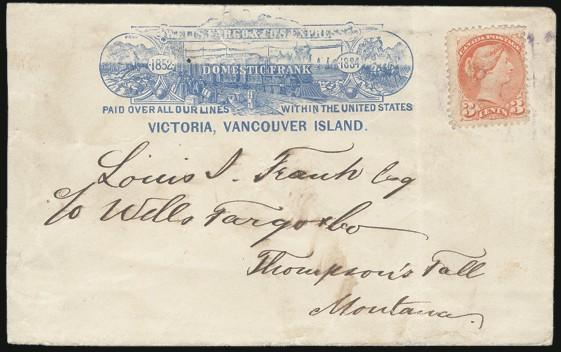 WELLS FARGO & CO'S EXPRESS
1852
1884
DOMESTIC FRANK
PAID OVER ALL OUR LINES WITHIN THE UNITED STATES
VICTORIA, VANCOUVER ISLAND.
CANADA POSTAGE
3 CENTS 3
Louis I. Frank Esq
c/o Wells Fargo & Co
Thompson's Fall
Montana